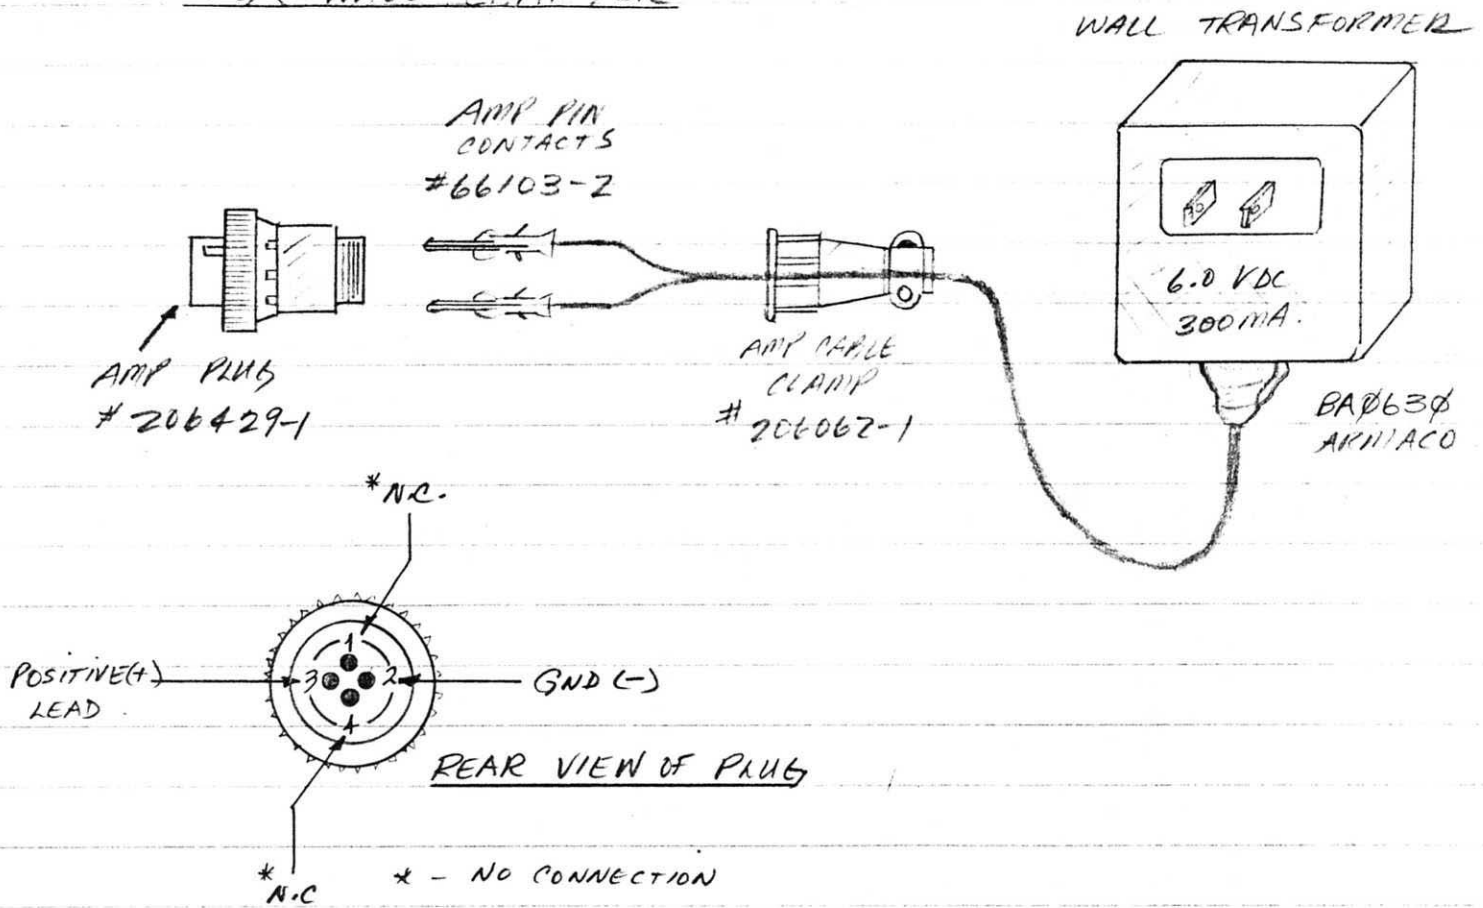 WALL TRANSFORMER
AMP PIN
CONTACTS
#66103-2
6.0 VDC
300MA.
AMP PLUG
# 206429-1
AMP CABLE
CLAMP
# 206062-1
BAØ63Ø
ARMACO
*N.C.
1
POSITIVE(+)
LEAD
3
2
GND (-)
4
REAR VIEW OF PLUG
*
N.C
* - NO CONNECTION